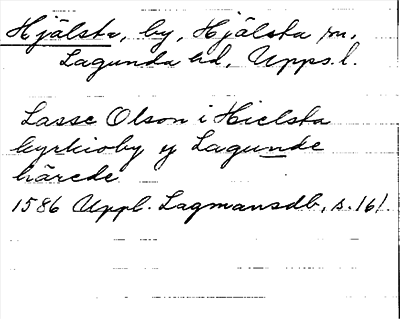 Hjälsta, by, Hjälsta sn,
Lagunda hd, Upps.l.
Lasse Olson i Hielsta
kyrkioby y Lagunde
härede
1586 Uppl. Lagmansdb, s. 161.